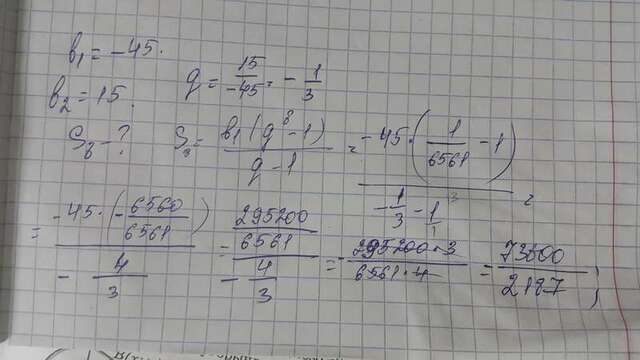 b₁ = -45.
b₂ = 15. q = 15/-45 = -1/3
S₈ - ? S₈ = b₁(q⁸ - 1)/(q - 1) = -45·(1/6561 - 1)/(-1/3 - 1/1) =
= -45·(-6560/6561)/(-4/3) = (295200/6561)/(-4/3) = -295200·3/(6561·4) = -73800/2187